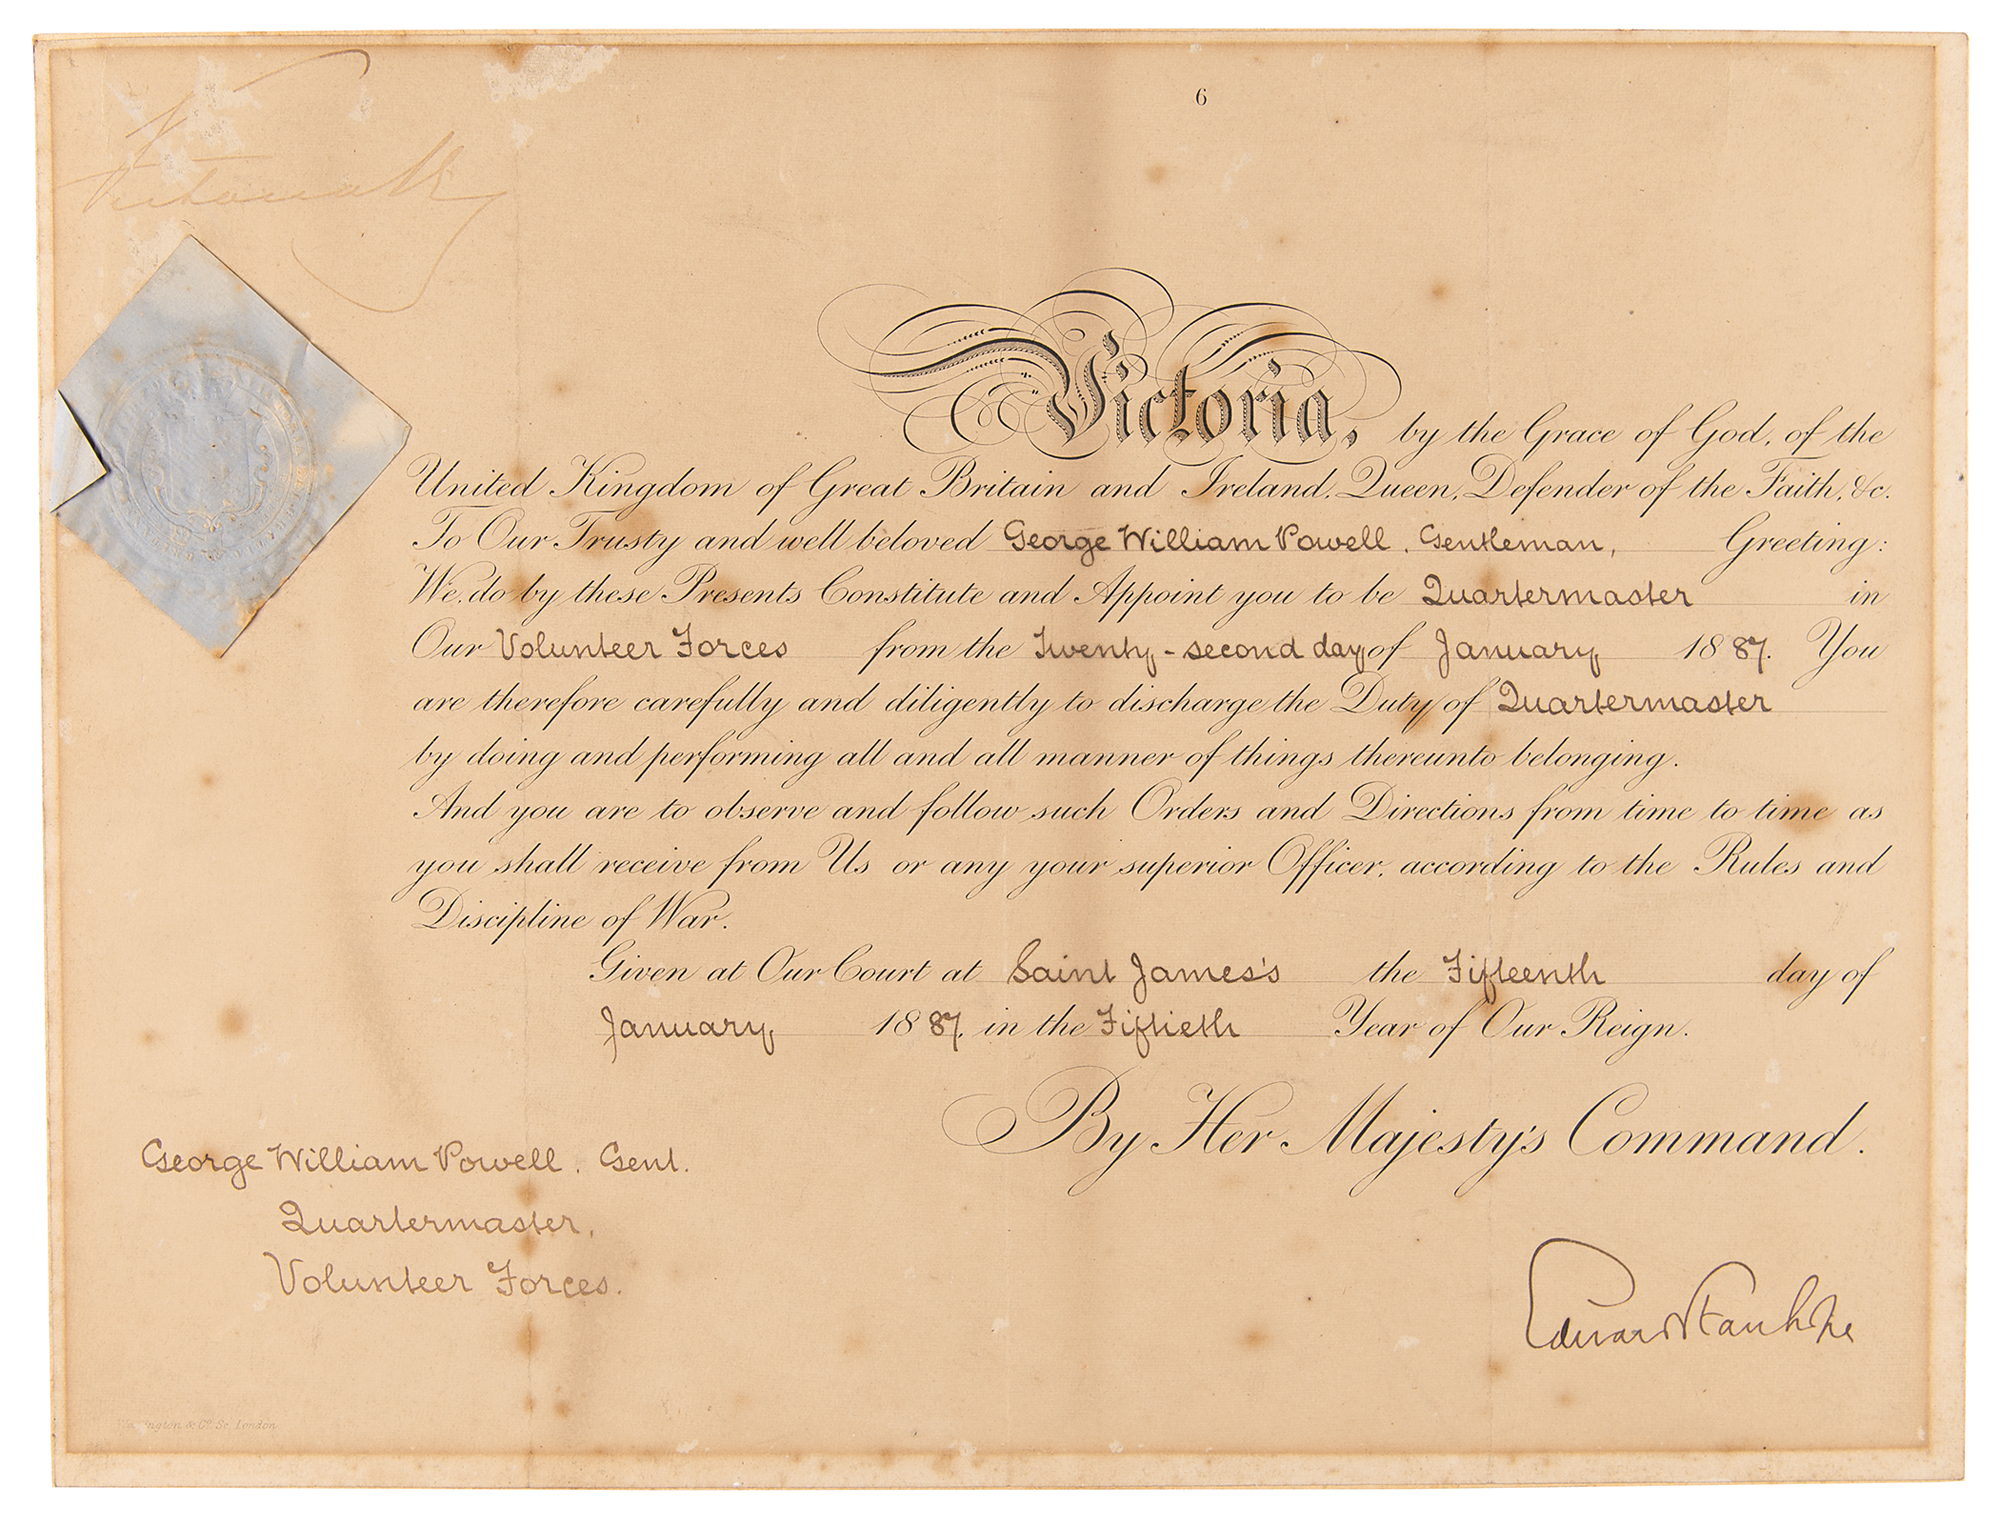 6
Victoria R
Victoria, by the Grace of God, of the
United Kingdom of Great Britain and Ireland, Queen, Defender of the Faith, &c.
To Our Trusty and well beloved George William Powell, Gentleman, Greeting:
We, do by these Presents Constitute and Appoint you to be Quartermaster in
Our Volunteer Forces from the Twenty-second day of January 1887. You
are therefore carefully and diligently to discharge the Duty of Quartermaster
by doing and performing all and all manner of things thereunto belonging.
And you are to observe and follow such Orders and Directions from time to time as
you shall receive from Us or any your superior Officer, according to the Rules and
Discipline of War.
Given at Our Court at Saint James's the Fifteenth day of
January 1887, in the Fiftieth Year of Our Reign.
By Her Majesty's Command.
George William Powell, Gent.
Quartermaster,
Volunteer Forces.
Edward Stanhope
& Co. Sc. London